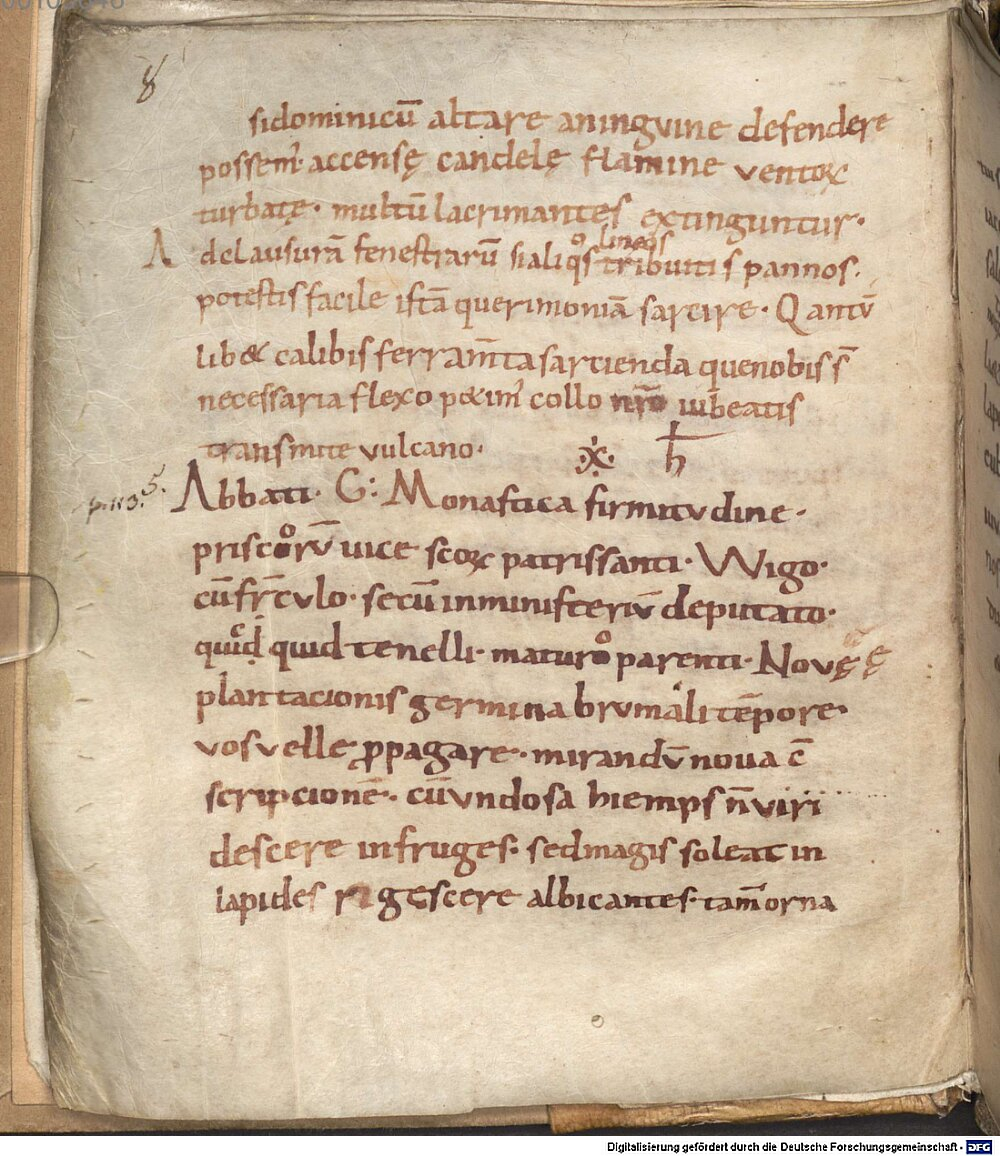 8
si dominicū altare aningvine defendere
possem̄ accensę candelę flamine ventoꝝ
turbatę · multū lacrimantes extinguntur·
lineos
A declausurā fenestrarū si aliqͦs tribuitis pannos·
potestis facile istā querimoniā sarcire · Qantū
lib& calibis ferram̄ta sarcienda que nobis s̄
necessaria flexo p&im̄ collo nr̄o iubeatis
transmitte vulcano·
p. 113. 5.
Abbati · G: Monastica firmitvdine·
priscorū uice scoꝝ patrissanti · Wigo·
cū fr̄cvlo · secū in ministeriū deputato·
quicꝗd quid tenelli · maturͦo parenti · Novę ę
plantacionis germina brvmali tēpore·
vos velle ꝓpagare · mirandū noua c̄
scripcionē · cū vndosa hiemps n̄ viri
descere in fruges · sed magis soleat in
lapides rigescere albicantes · tam̄ orna
Digitalisierung gefördert durch die Deutsche Forschungsgemeinschaft - DFG